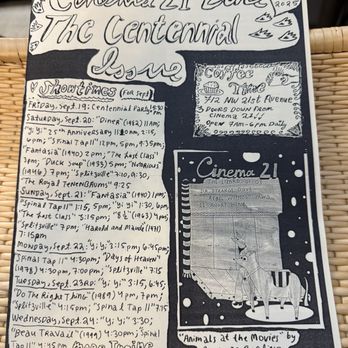 Cinema 21 Zine
2025
The Centennial
Issue
Showtimes (For Sept)
Friday, Sept. 19: Centennial Party
Saturday, Sept. 20: "Diner" (1982) 11am;
"Yi Yi" 25th Anniversary 11 am, 2:15,
6pm; "Spinal Tap II" 12pm, 5pm, 9:35pm;
"Fantasia" (1940) 2pm; "The Last Class"
3pm; "Duck Soup" (1933) 5pm; "Notorious"
(1946) 7pm; "Splitsville" 7:10, 9:30,
"The Royal Tenenbaums" 9:25
Sunday, Sept. 21: "Fantasia" (1940) 11am,
"Spinal Tap II" 1:15, 5pm; "Yi Yi" 1:30, 6pm;
"The Last Class" 3:15pm; "8½" (1963) 4pm;
"Splitsville" 7pm; "Harold and Maude" (1971)
7:15pm
Monday, Sept. 22: "Yi Yi" 3:15pm, 6:45pm;
"Spinal Tap II" 4:30pm; "Days of Heaven"
(1978) 4:30pm, 7:00pm; "Splitsville" 7:15
Tuesday, Sept. 23RD: "Yi Yi" 3:15, 6:45;
"Do The Right Thing" (1989) 4pm, 7pm;
"Splitsville" 4:15pm; "Spinal Tap II" 7:15
Wednesday, Sept. 24: "Yi Yi" 3:30;
"Beau Travail" (1999) 4:30pm; Spinal
Tap II" 4:45pm
Coffee
Time
712 NW 21st Avenue
3 doors down from
Cinema 21!!
Open 7AM-6PM Daily
Cinema 21
"Animals at the Movies" by